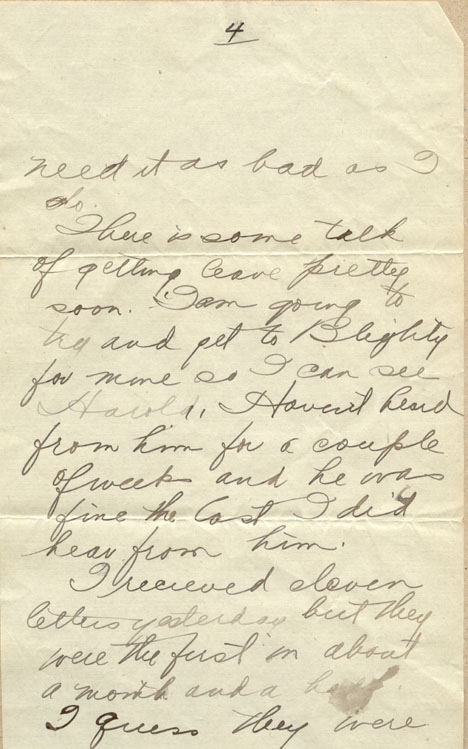 4
need it as bad as I
do.
There is some talk
of getting leave pretty
soon. I am going to
try and get to Blighty
for mine so I can see
Harold, I Haven't heard
from him for a couple
of weeks and he was
fine the last I did
hear from him.
I recieved eleven
letters yesterday but they
were the first in about
a month and a half.
I guess they were